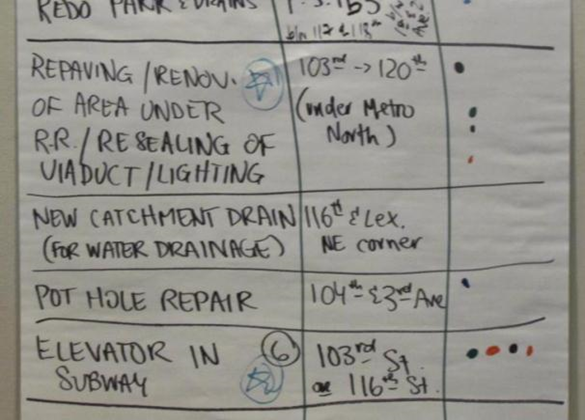 REDO PARK & DRAINS
b/n 112 & 113th
REPAVING/RENOV.
OF AREA UNDER
R.R./RESEALING OF
VIADUCT/LIGHTING
103rd -> 120th
(under Metro
North)
NEW CATCHMENT DRAIN
(FOR WATER DRAINAGE)
116th & Lex.
NE corner
POT HOLE REPAIR
104th & 3rd Ave
ELEVATOR IN
SUBWAY
6
103rd St.
116th St.